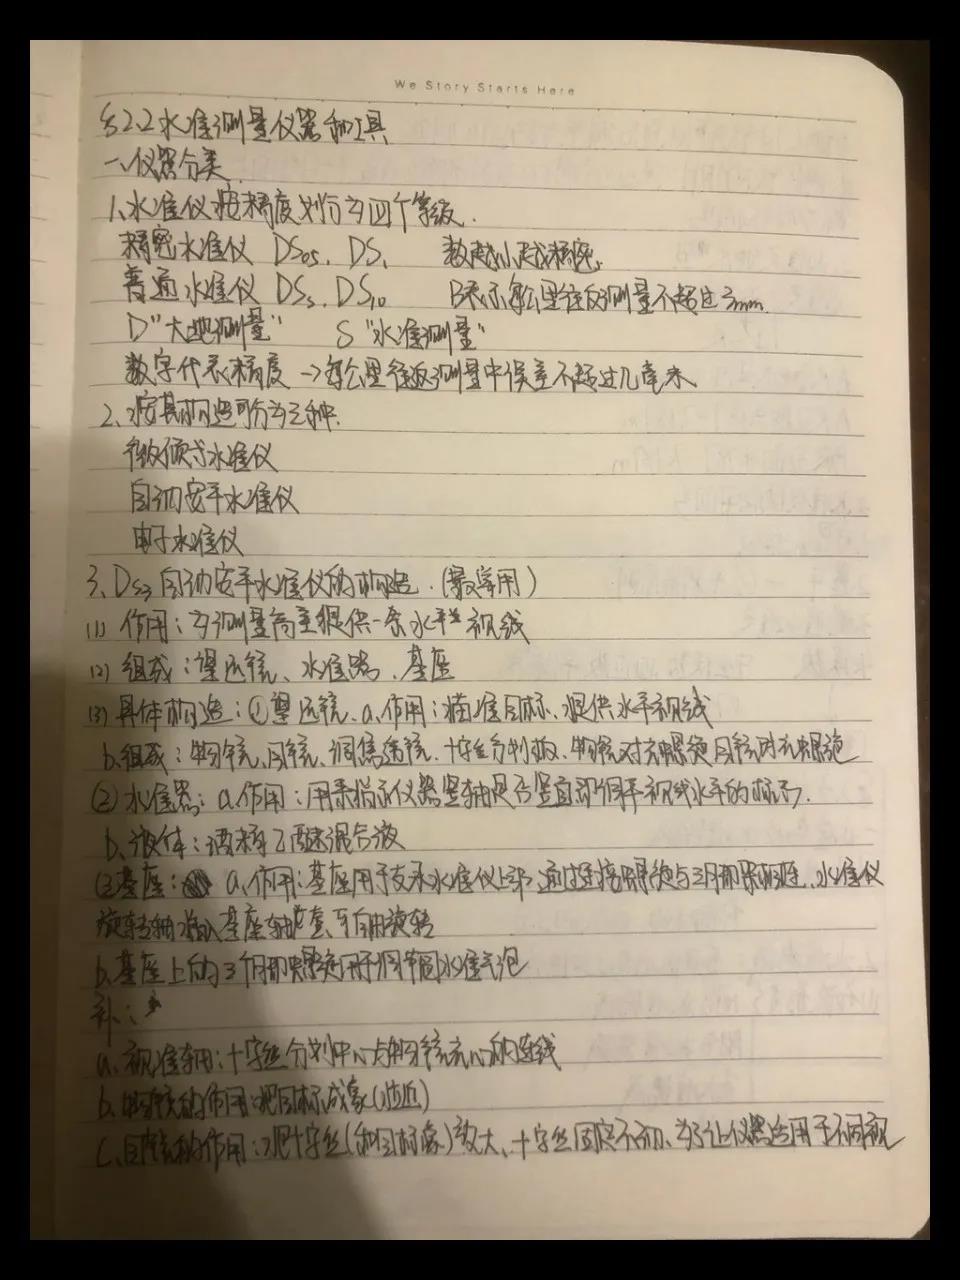 We Story Starts Here
§2.2 水准测量仪器和工具
一、仪器分类
1、水准仪按精度划分为四个等级.
精密水准仪 DS05、DS1 数越小越精密.
普通水准仪 DS3、DS10 表示每公里往返测量不超过3mm
D"大地测量" S"水准测量"
数字代表精度→每公里往返测量中误差不超过几毫米
2、按其构造可分为三种.
微倾式水准仪
自动安平水准仪
电子水准仪
3、DS3自动安平水准仪的构造.(最常用)
(1) 作用:为测量高差提供一条水平视线
(2) 组成:望远镜、水准器、基座
(3) 具体构造:①望远镜、a、作用:瞄准目标、提供水平视线
b、组成:物镜、目镜、调焦透镜、十字丝分划板、物镜对光螺旋 目镜对光螺旋
②水准器:a.作用:用来指示仪器竖轴是否竖直 视线水平的标志.
b、液体:酒精乙醚混合液
③基座: a、作用:基座用于支承水准仪上部 通过连接螺旋与三脚架相连、水准仪
旋转轴插入基座轴套、可自由旋转
b、基座上的3个脚螺旋用于调节圆水准气泡
补:
a、视准轴:十字丝分划中心与物镜光心的连线
b、物镜的作用:把目标成象(附近)
C、目镜的作用:把十字丝(和目标象)放大、十字丝固定不动、为了让仪器适用于不同视